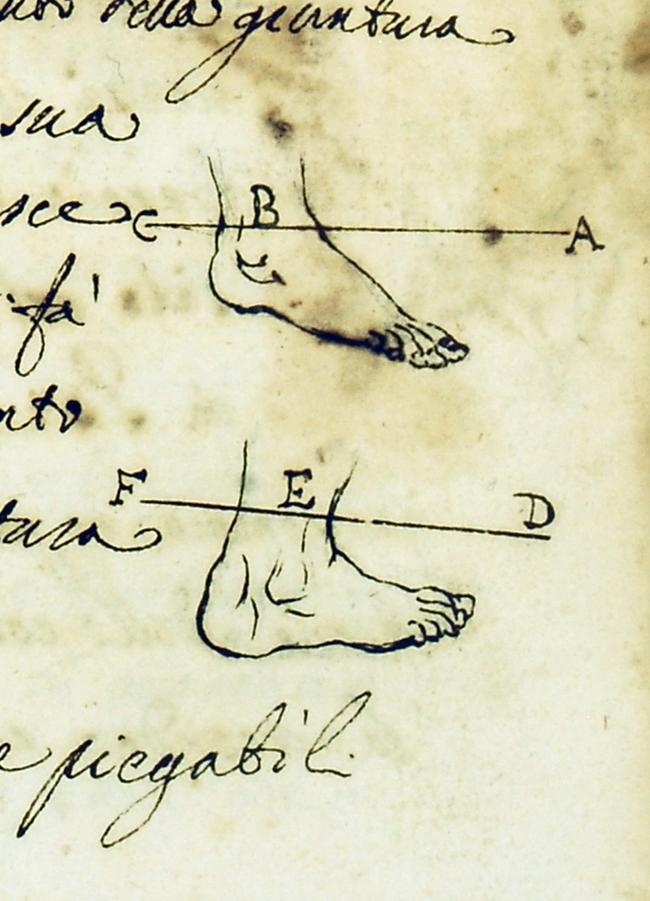 della giuntura
sua
sce
C B A
fà
nto
F E D
tura
e piegabili